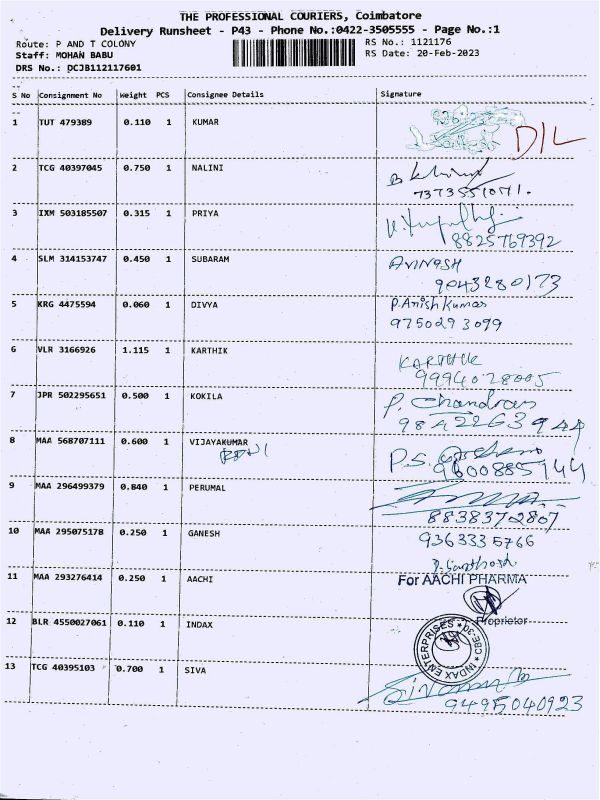 THE PROFESSIONAL COURIERS, Coimbatore
Delivery Runsheet - P43 - Phone No.:0422-3505555 - Page No.:1
Route: P AND T COLONY RS No.: 1121176
Staff: MOHAN BABU RS Date: 20-Feb-2023
DRS No.: DCJB112117601
S No Consignment No Weight PCS Consignee Details Signature
1 TUT 479389 0.110 1 KUMAR D/L
2 TCG 40397045 0.750 1 NALINI
7373551071.
3 IXM 503185507 0.315 1 PRIYA
8825769392
4 SLM 314153747 0.450 1 SUBARAM AVINASH
9043280173
5 KRG 4475594 0.060 1 DIVYA P.Anish Kumar
9750293099
6 VLR 3166926 1.115 1 KARTHIK KARTHIK
9994028005
7 JPR 502295651 0.500 1 KOKILA P. Chandran
9842263944
8 MAA 568707111 0.600 1 VIJAYAKUMAR P.S.
9600885144
9 MAA 296499379 0.840 1 PERUMAL
8838372807
10 MAA 295075178 0.250 1 GANESH 9363335766
P. Santhosh
11 MAA 293276414 0.250 1 AACHI For AACHI PHARMA
Proprietor
12 BLR 4550027061 0.110 1 INDAX INDAX ENTERPRISES * CBE-30 *
13 TCG 40395103 0.700 1 SIVA
9495040923